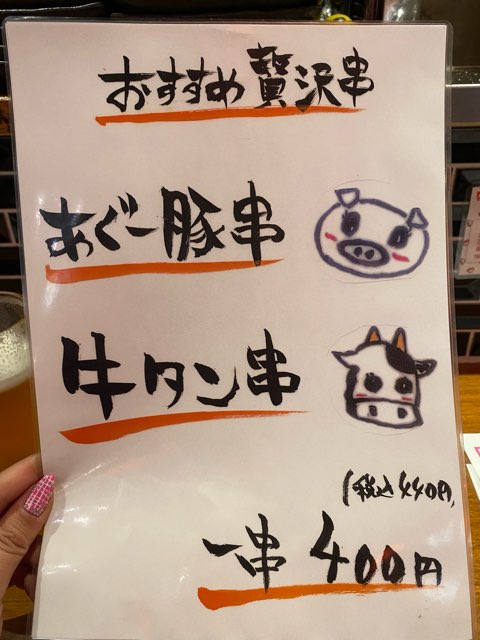 おすすめ贅沢串
あぐー豚串
牛タン串
(税込440円)
一串 400円